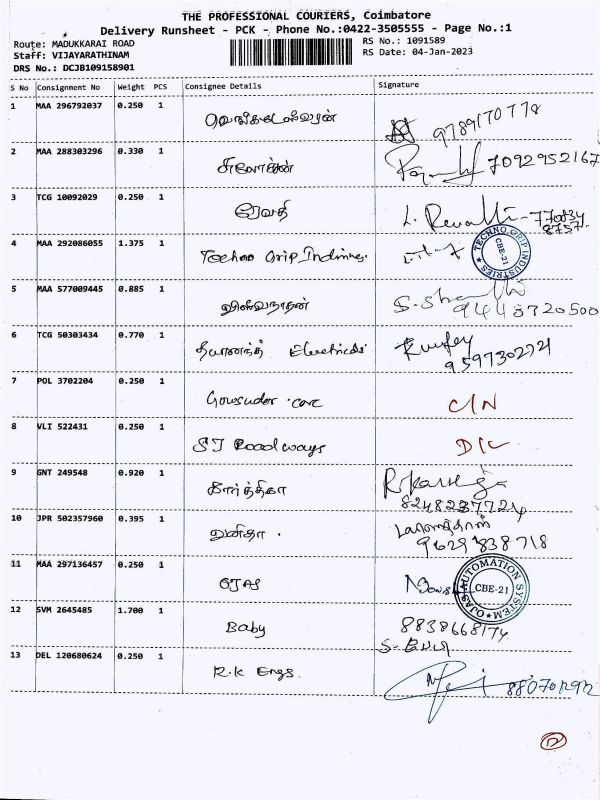 THE PROFESSIONAL COURIERS, Coimbatore
Delivery Runsheet - PCK - Phone No.:0422-3505555 - Page No.:1
Route: MADUKKARAI ROAD
Staff: VIJAYARATHINAM
DRS No.: DCJB109158901
RS No.: 1091589
RS Date: 04-Jan-2023
S No Consignment No Weight PCS Consignee Details Signature
1 MAA 296792037 0.250 1 வெங்கடேஸ்வரன் 9789170778
2 MAA 288303296 0.330 1 7092952167
3 TCG 10092029 0.250 1 ரேவதி L. Revathi
4 MAA 292086055 1.375 1 Techno Grip Indines. TECHNO GRIP INDUSTRIES CBE-21
5 MAA 577009445 0.885 1 விஸ்வநாதன்
6 TCG 50303434 0.770 1 Electricals
7 POL 3702204 0.250 1 C/N
8 VLI 522431 0.250 1 ST Roadways D/C
9 GNT 249548 0.920 1 கார்த்திகா 8248237724
10 JPR 502357960 0.395 1 வனிதா . 9629838718
11 MAA 297136457 0.250 1 OJAS OJAS AUTOMATION SYSTEM CBE-21
12 SVM 2645485 1.700 1 Baby 8838668174
S. பேபி
13 DEL 120680624 0.250 1 R.K Engs.
12